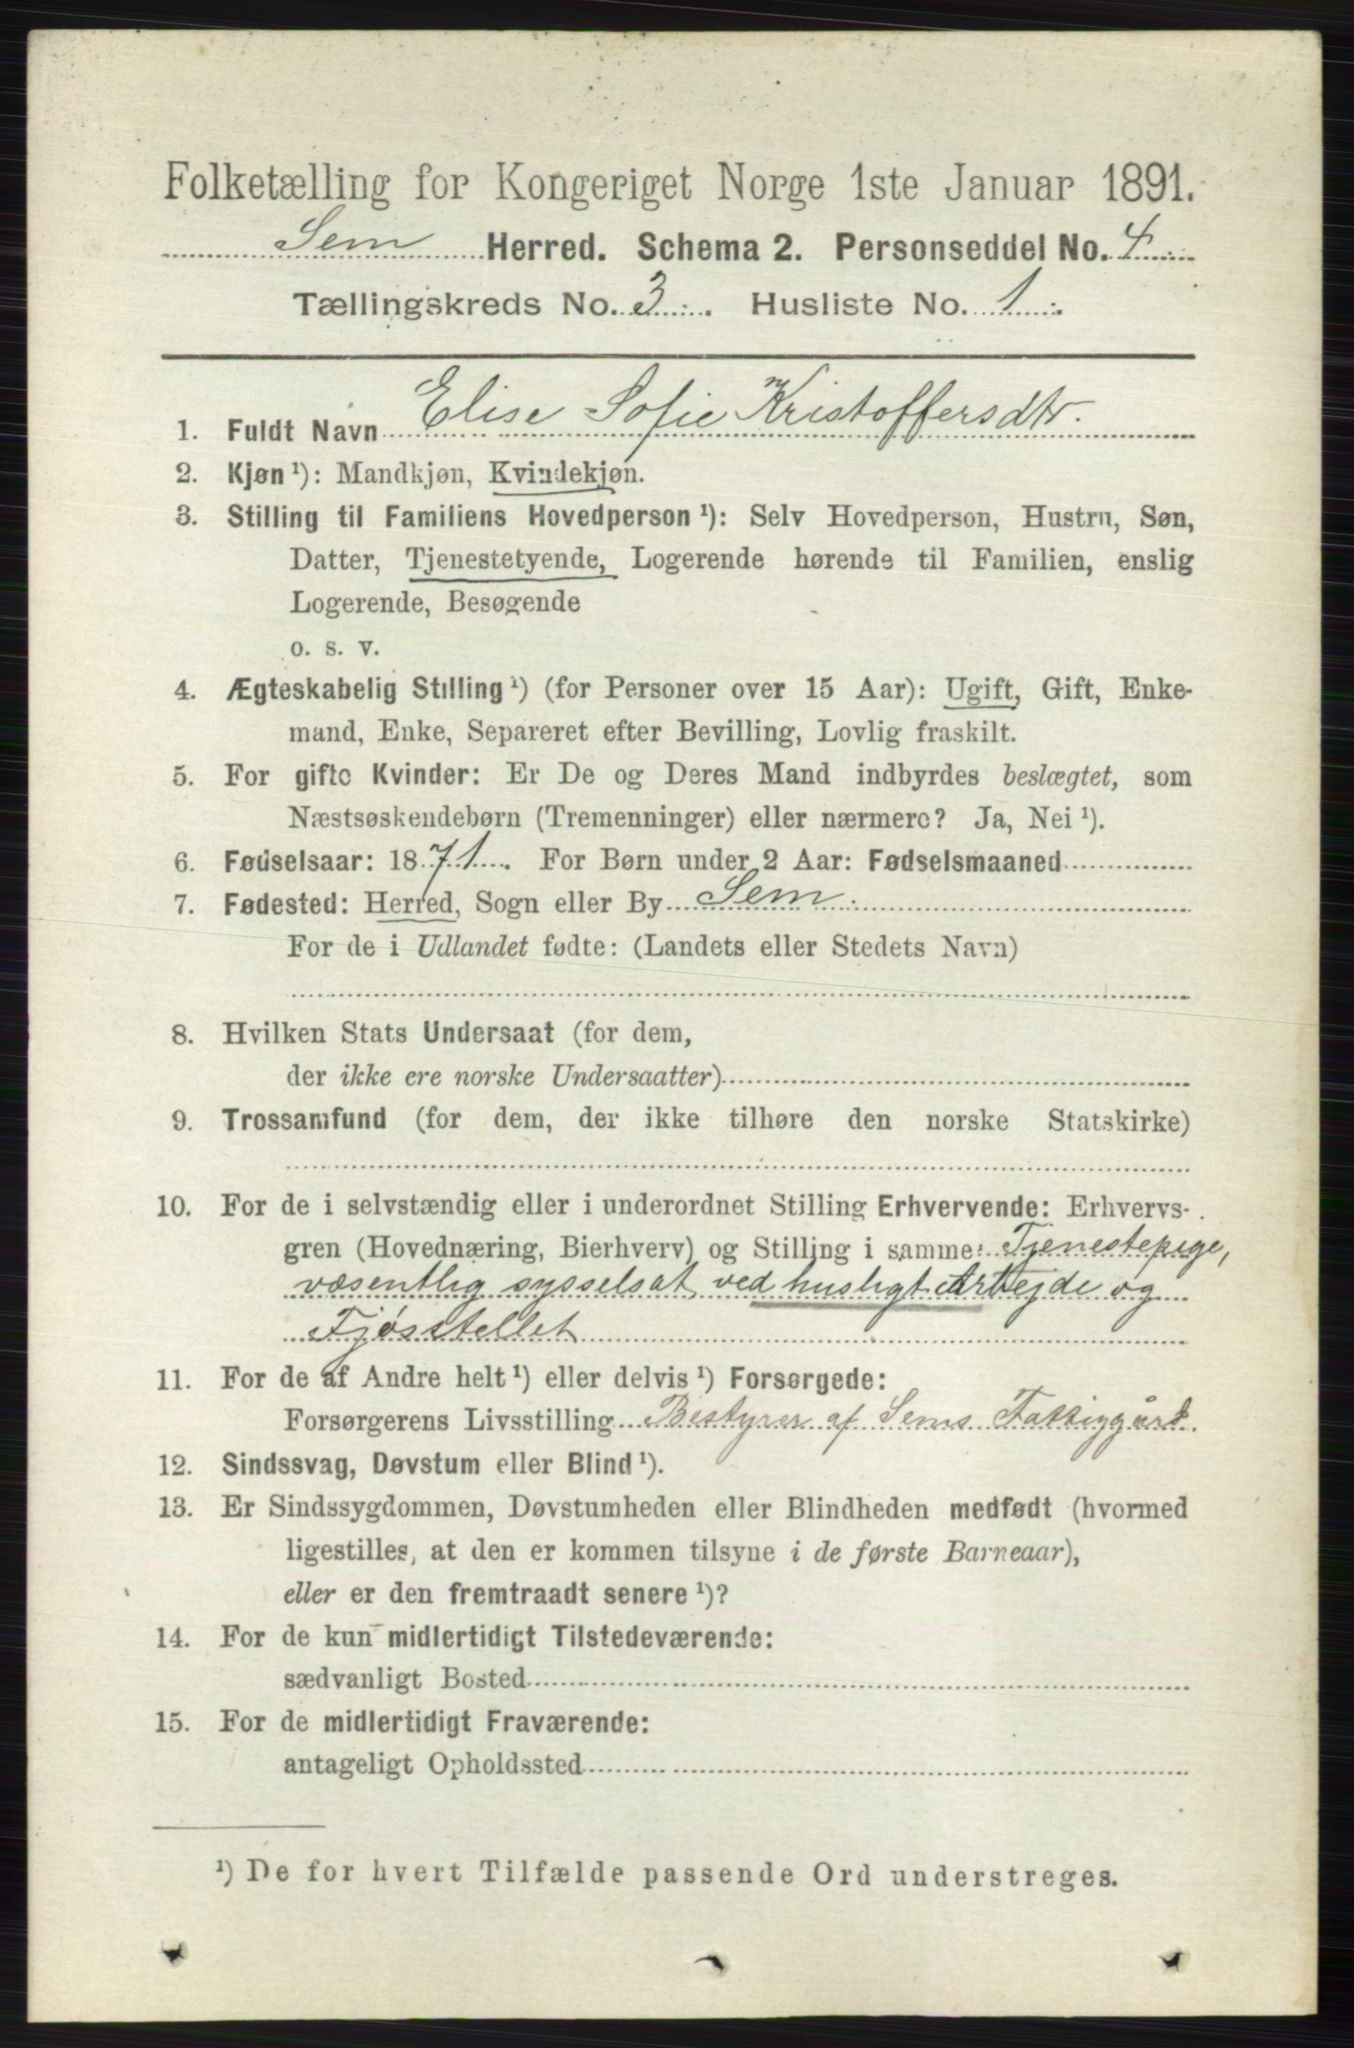 Folketælling for Kongeriget Norge 1ste Januar 1891.
Sem Herred. Schema 2. Personseddel No. 4
Tællingskreds No. 3. Husliste No. 1.
1. Fuldt Navn Elise Sofie Kristoffersdtr.
2. Kjøn ¹): Mandkjøn, Kvindekjøn.
3. Stilling til Familiens Hovedperson ¹): Selv Hovedperson, Hustru, Søn,
Datter, Tjenestetyende, Logerende hørende til Familien, enslig
Logerende, Besøgende
o. s. v.
4. Ægteskabelig Stilling ¹) (for Personer over 15 Aar): Ugift, Gift, Enke-
mand, Enke, Separeret efter Bevilling, Lovlig fraskilt.
5. For gifte Kvinder: Er De og Deres Mand indbyrdes beslægtet, som
Næstsøskendebørn (Tremenninger) eller nærmere? Ja, Nei ¹).
6. Fødselsaar: 1871. For Børn under 2 Aar: Fødselsmaaned
7. Fødested: Herred, Sogn eller By Sem.
For de i Udlandet fødte: (Landets eller Stedets Navn)
8. Hvilken Stats Undersaat (for dem,
der ikke ere norske Undersaatter)
9. Trossamfund (for dem, der ikke tilhøre den norske Statskirke)
10. For de i selvstændig eller i underordnet Stilling Erhvervende: Erhvervs-
gren (Hovednæring, Bierhverv) og Stilling i samme: Tjenestepige,
væsentlig sysselsat ved husligt Arbejde og
Fjøsstellet
11. For de af Andre helt ¹) eller delvis ¹) Forsørgede:
Forsørgerens Livsstilling Bestyrer af Sems Fattiggård.
12. Sindssvag, Døvstum eller Blind ¹).
13. Er Sindssygdommen, Døvstumheden eller Blindheden medfødt (hvormed
ligestilles, at den er kommen tilsyne i de første Barneaar),
eller er den fremtraadt senere ¹)?
14. For de kun midlertidigt Tilstedeværende:
sædvanligt Bosted
15. For de midlertidigt Fraværende:
antageligt Opholdssted
¹) De for hvert Tilfælde passende Ord understreges.